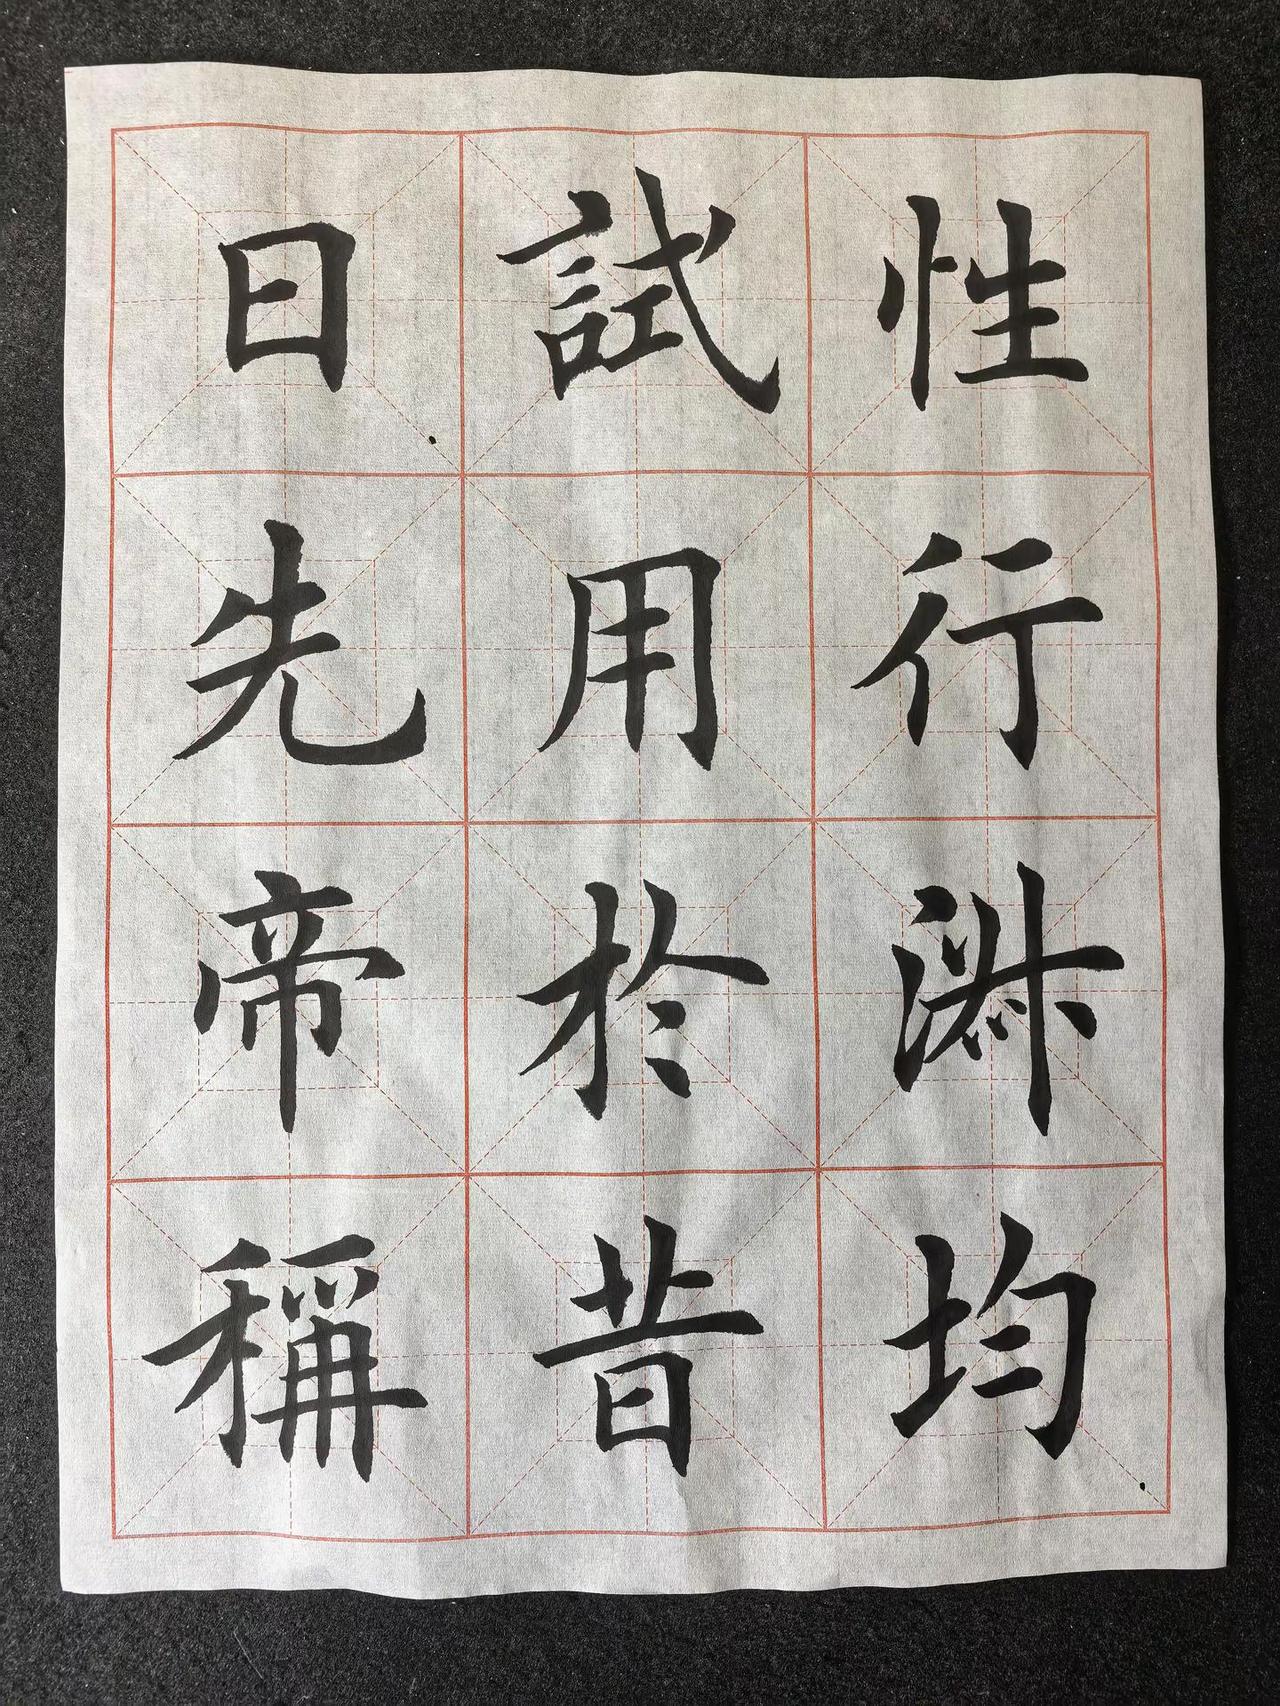 性行淑均
試用於昔
日先帝稱